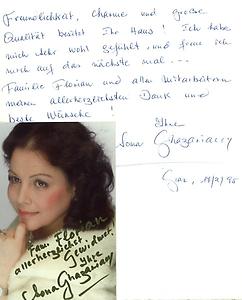 Freundlichkeit, Charme und große
Qualität besitzt Ihr Haus! Ich habe
mich sehr wohl gefühlt und freue ich
mich auf das nächste mal...
Familie Florian und allen Mitarbeitern
meinen allerherzlichsten Dank und
beste Wünsche!
Ihre
Sona Ghazarian
Graz,
Fam. Florian
allerherzlichst
gewidmet
Ihre
Sona
Ghazarian